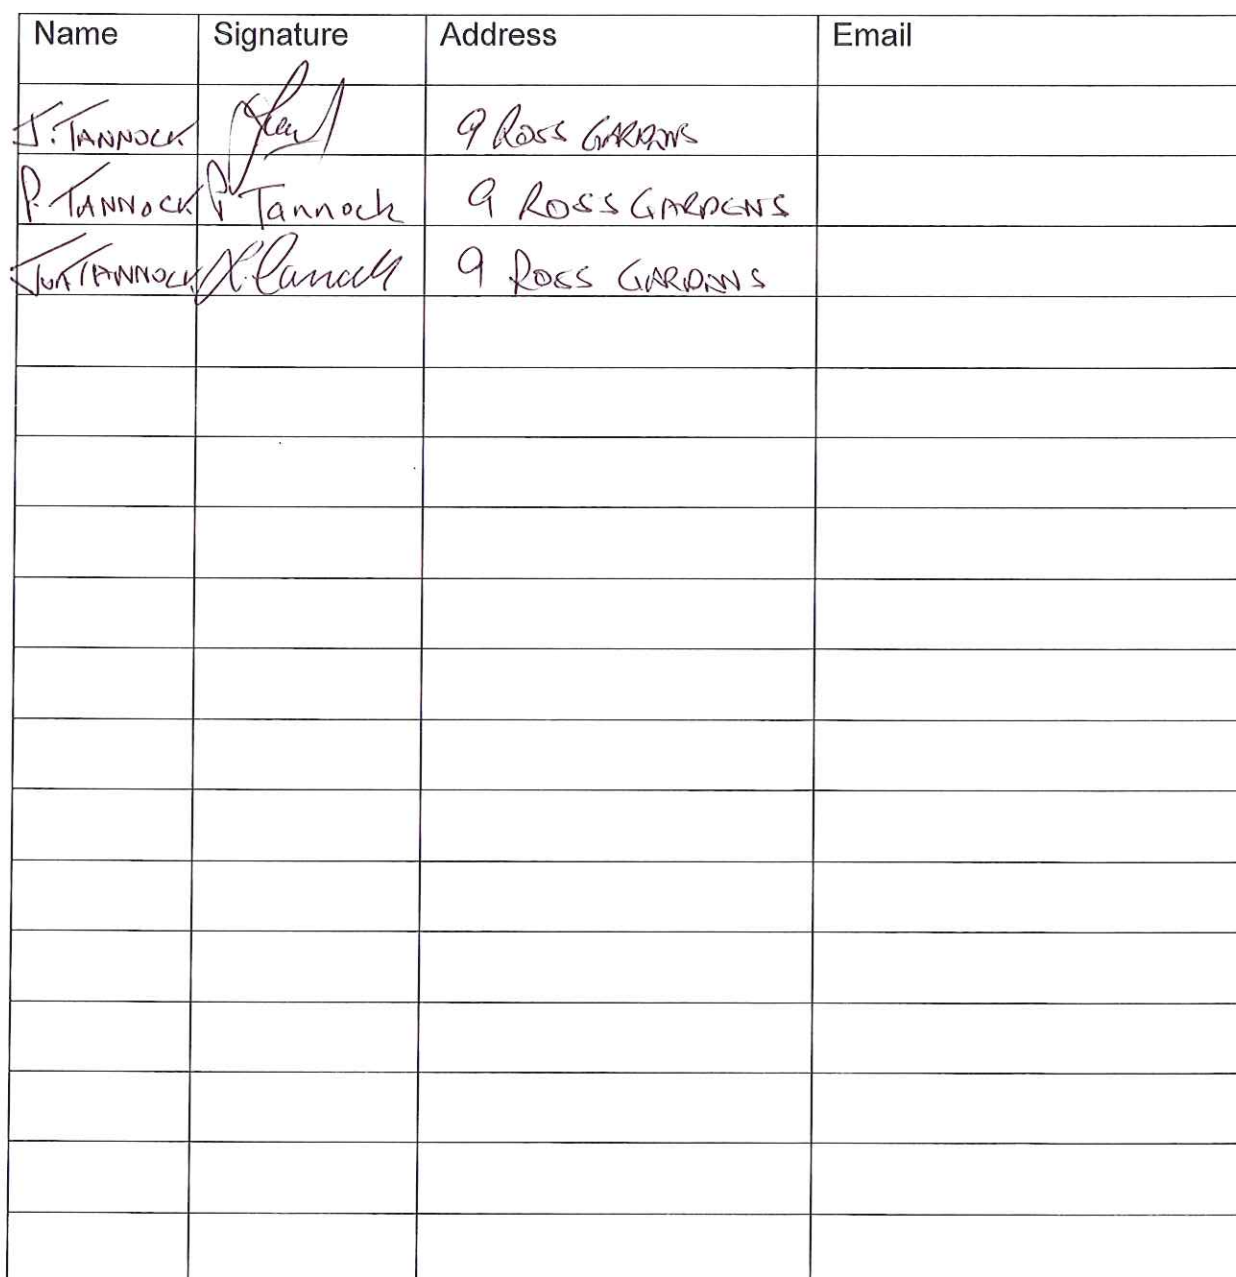 Name Signature Address Email
J. TANNOCK 9 ROSS GARDENS
P. TANNOCK P Tannock 9 ROSS GARDENS
TANNOCK 9 ROSS GARDENS